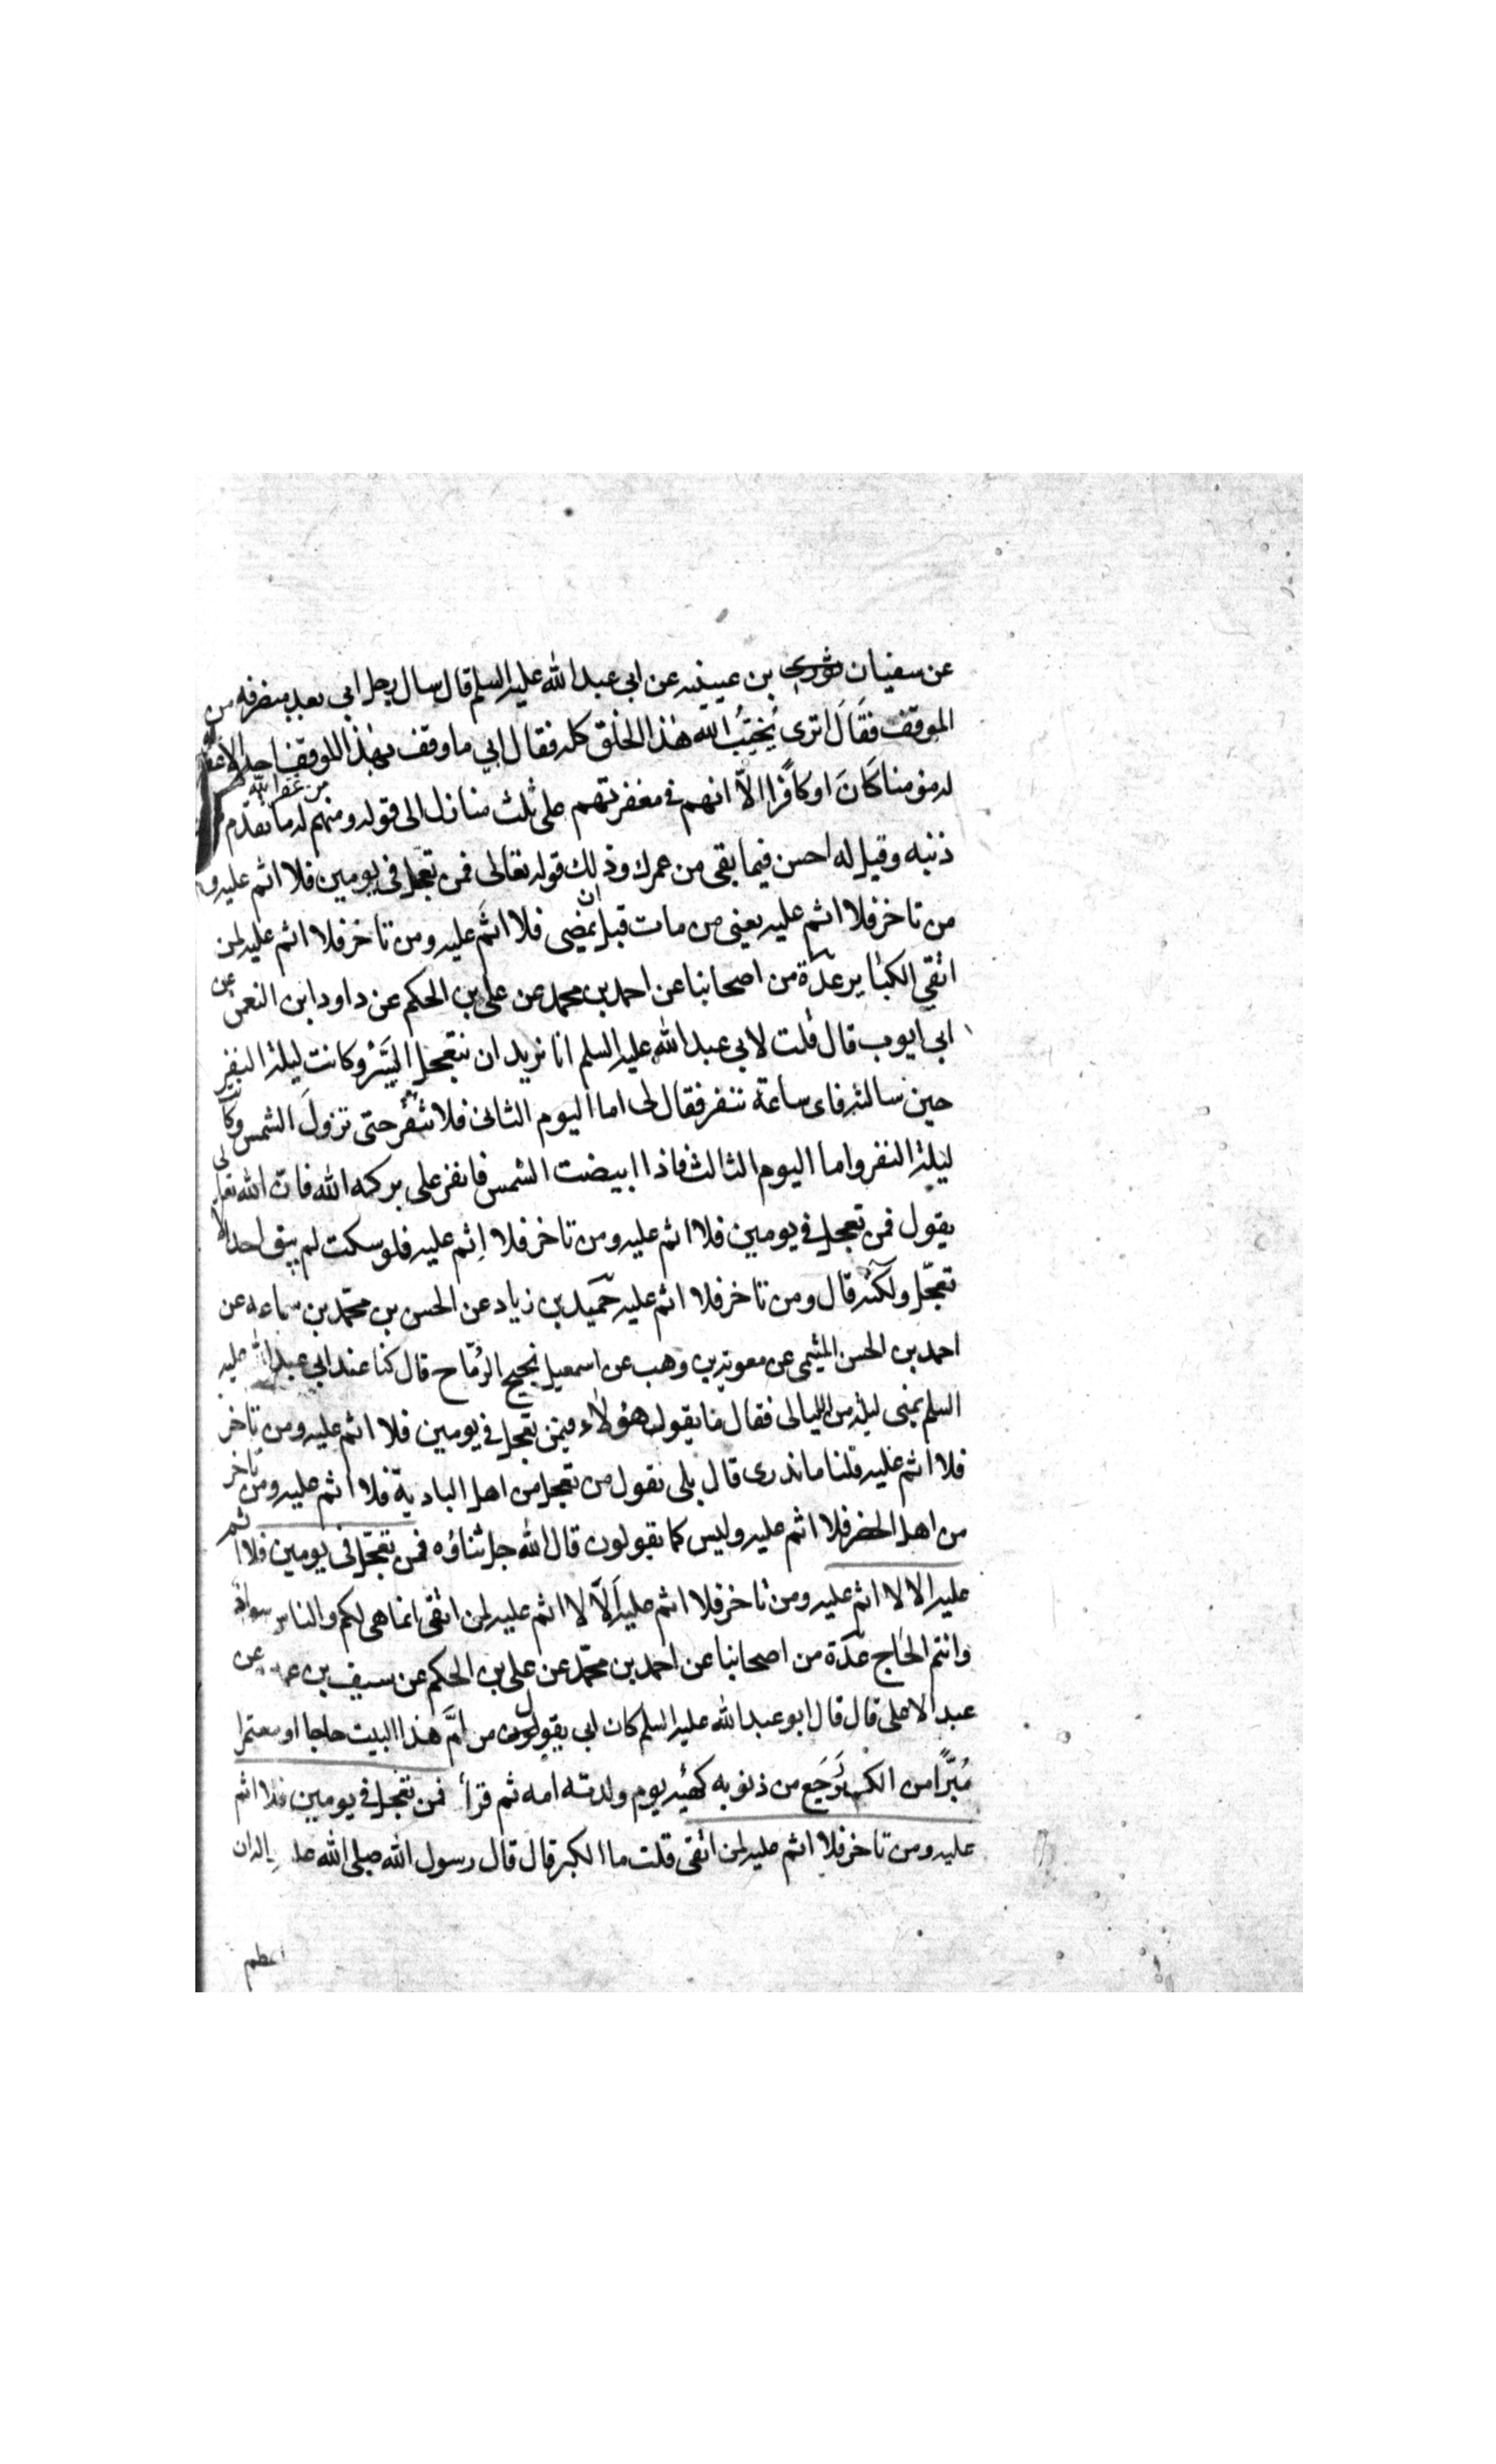 عن سفيان ثوري بن عيينه عن ابى عبد الله عليه السلم قال سال رجل ابى بعد منصرفه من
الموقف فقال اترى يُخيّبُ الله هذا الخلق كله فقال ابي ما وقف بهذا الموقف احد الا غفر الله
له مؤمنا كَانَ او كافرًا الّا انهم فى مغفرتهم على ثلث منازل الى قوله ومنهم من غفر الله له ما تقدم من
ذنبه وقيل له احسن فيما بقى من عمرك وذلك قوله تعالى فمن تعجل فى يومين فلا اثم عليه و
من تاخر فلا اثم عليه يعنى من مات قبل ان يمضى فلا اثم عليه ومن تاخر فلا اثم عليه لمن
اتقي الكبائر عدّة من اصحابنا عن احمد بن محمد عن على بن الحكم عن داود ابن النعمن عن
ابى ايوب قال قلت لابى عبد الله عليه السلم انا نريد ان نتعجل السَّيْرَ وكانت ليلة النفر
حين سالته فاى ساعة ننفر فقال لى اما اليوم الثانى فلا تنفر حتى تزولَ الشمس وكانت
ليلة النفر واما اليوم الثالث فاذا ابيضت الشمس فانفر على بركه الله فان الله تعالى
يقول فمن تعجل فى يومين فلا اثم عليه ومن تاخر فلا اِثم عليه فلو سكت لم يبق احد الا
تعجّل ولكنه قال ومن تاخر فلا اثم عليه حميد بن زياد عن الحسن بن محمّد بن سماعه عن
احمد بن الحسن الميثمى عن معوية بن وهب عن اسمعيل نجيح الرمّاح قال كنا عند ابى عبد الله عليه
السلم بمنى ليلة من الليالى فقال ما يقول هؤلاء فيمن تعجل فى يومين فلا اثم عليه ومن تاخر
فلا اثم عليه قلنا ماندرى قال بلى يقول من تعجل من اهل البادية فلا اثم عليه ومن تاخر
من اهل الحضر فلا اثم عليه وليس كما يقولون قال الله جل ثناؤه فمن تعجّل فى يومين فلا اثم
عليه الا لا اثم عليه ومن تاخر فلا اثم عليه اَلّا لا اثم عليه لمن اتقى انما هى لكم والناس سواد
وانتم الحَاج عدّة من اصحابنا عن احمد بن محمّد عن على بن الحكم عن سيف بن عن
عبد الاعلى قال قال ابو عبد الله عليه السلم كان ابى يقول من اَمَّ هذا البيت حاجا او معتمرا
مُبرَّأ من الكبر رَجَع من ذنوبه كهيئه يوم ولدته امه ثم قرأ فمن تعجل فى يومين فلا اثم
عليه ومن تاخر فلا اثم عليه لمن اتقى قلت ما الكبر قال قال رسول الله صلى الله عليه واله ان
اعظم